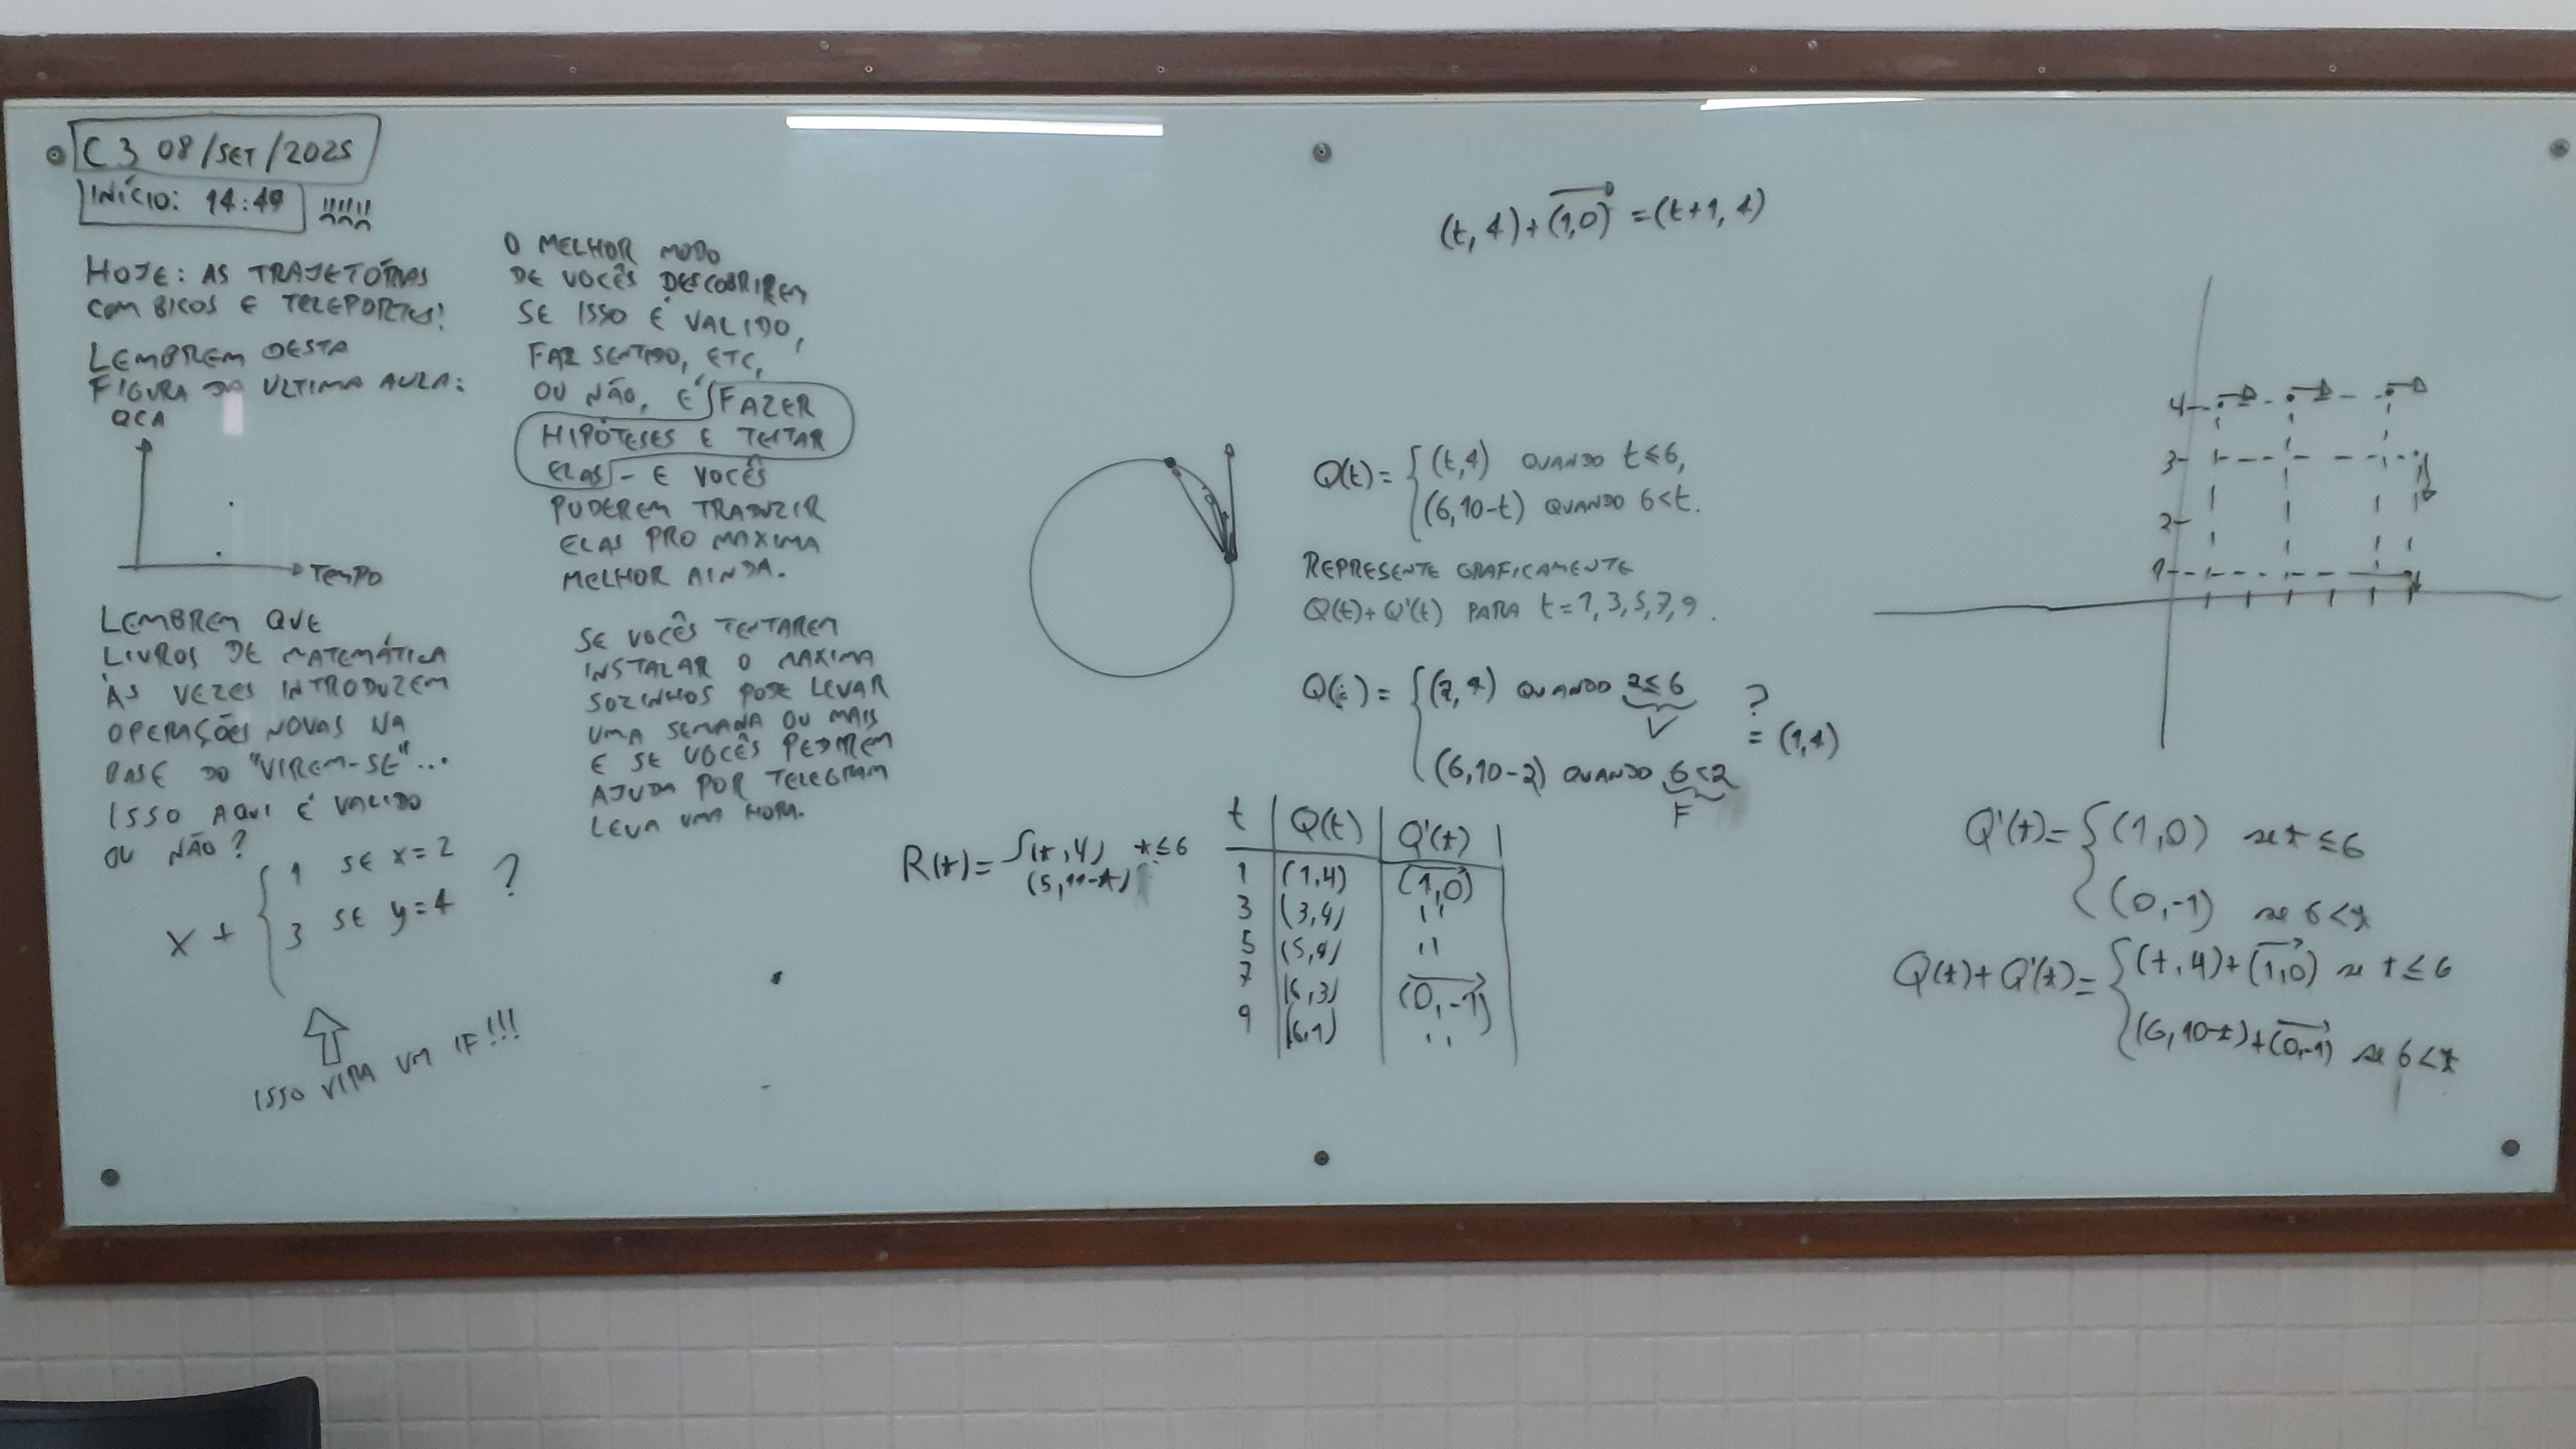 C3 08/SET/2025
INÍCIO: 14:49 !!!!!!
HOJE: AS TRAJETÓRIAS
COM BICOS E TELEPORTES!
LEMBREM DESTA
FIGURA DA ULTIMA AULA:
QCA
TEMPO
LEMBREM QUE
LIVROS DE MATEMÁTICA
ÀS VEZES INTRODUZEM
OPERAÇÕES NOVAS NA
BASE DO "VIREM-SE"...
ISSO AQUI É VALIDO
OU NÃO?
x + { 1 SE x=2
3 SE y=4 ?
ISSO VIRA UM IF!!!
O MELHOR MODO
DE VOCÊS DESCOBRIREM
SE ISSO É VALIDO,
FAZ SENTIDO, ETC,
OU NÃO, É FAZER
HIPÓTESES E TESTAR
ELAS - E VOCÊS
PUDEREM TRADUZIR
ELAS PRO MAXIMA
MELHOR AINDA.
SE VOCÊS TENTAREM
INSTALAR O MAXIMA
SOZINHOS PODE LEVAR
UMA SEMANA OU MAIS
E SE VOCÊS PEDIREM
AJUDA POR TELEGRAM
LEVA UMA HORA.
R(t) = { (t,4) t≤6
(5,11-t)
(t,4)+(1,0)=(t+1,4)
Q(t) = { (t,4) QUANDO t≤6,
(6,10-t) QUANDO 6<t.
REPRESENTE GRAFICAMENTE
Q(t)+Q'(t) PARA t=1,3,5,7,9.
Q( ) = { (2,4) QUANDO 2≤6
V
(6,10-2) QUANDO 6<2
F
?
= (1,4)
t Q(t) Q'(t)
1 (1,4) (1,0)
3 (3,4) ''
5 (5,4) ''
7 (6,3) (0,-1)
9 (6,1) ''
4
3
2
1
Q'(t)= { (1,0) se t≤6
(0,-1) se 6<t
Q(t)+Q'(t)= { (t,4)+(1,0) se t≤6
(6,10-t)+(0,-1) se 6<t